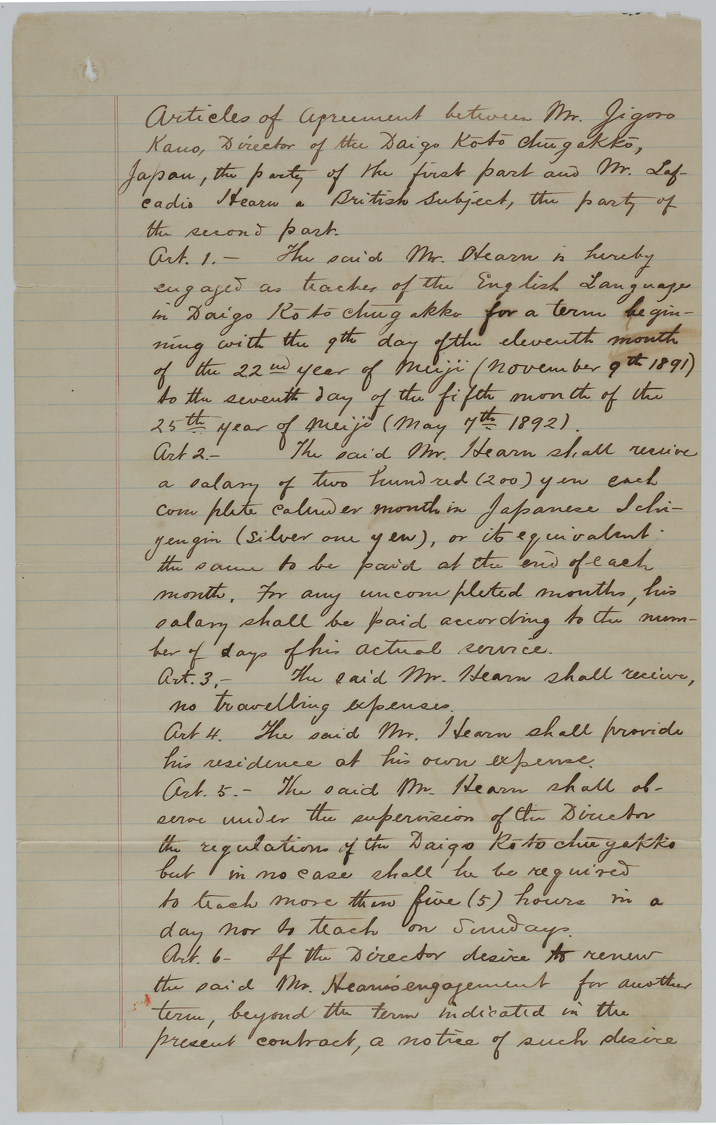 Articles of Agreement between Mr. Jigoro
Kano, Director of the Daigo Koto chugakko,
Japan, the party of the first part and Mr. Laf-
cadio Hearn a British Subject, the party of
the second part.
Art. 1. – The said Mr. Hearn is hereby
engaged as teacher of the English Language
in Daigo Koto chugakko for a term begin-
ning with the 9th day of the eleventh month
of the 22nd year of Meiji (November 9th 1891)
to the seventh day of the fifth month of the
25th year of Meiji (May 7th 1892).
Art 2. – The said Mr. Hearn shall receive
a salary of two hundred (200) yen each
complete calnder month in Japanese Ichi-
yengin (Silver one yen), or its equivalent;
the same to be paid at the end of each
month. For any uncompleted months, his
salary shall be paid according to the num-
ber of days of his actual service.
Art. 3, – The said Mr. Hearn shall receive,
no travelling expenses.
Art 4. The said Mr. Hearn shall provide
his residence at his own expense.
Art. 5. – The said Mr. Hearn shall ob-
serve under the supervision of the Director
the regulations of the Daigo Koto chugakko
but in no case shall he be required
to teach more then five (5) hours in a
day nor to teach on Sundays.
Art. 6 – If the Director desire to renew
the said Mr. Hearn's engagement for another
term, beyond the term indicated in the
present contract, a notice of such desire